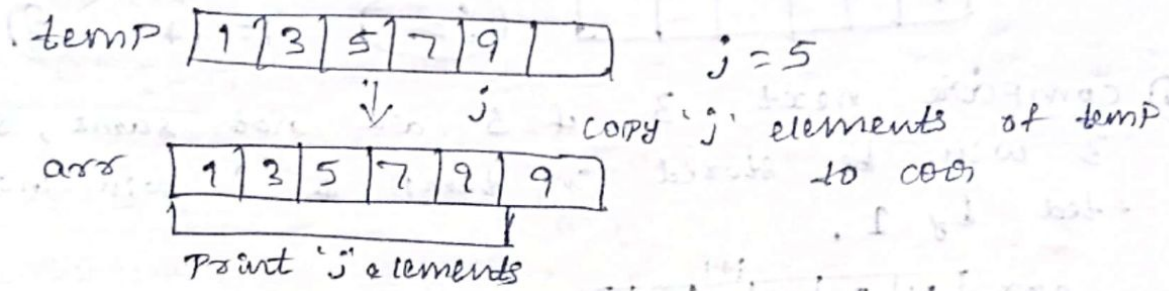 temp 1 3 5 7 9 j = 5
j
copy 'j' elements of temp
arr 1 3 5 7 9 9 to
Print 'j' elements